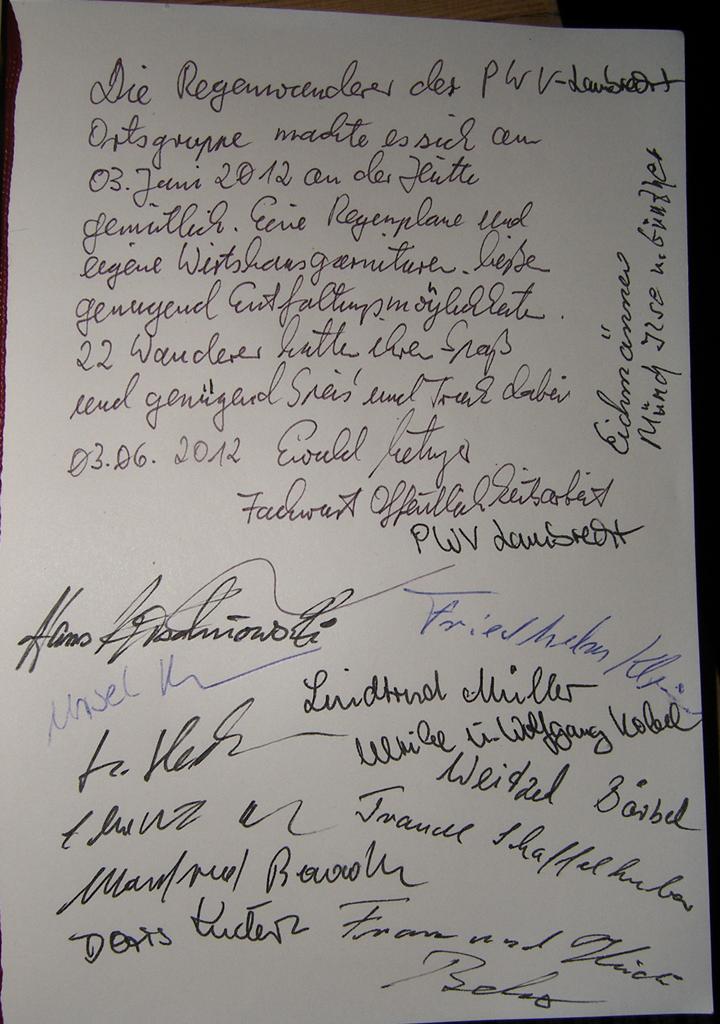 Die Regenwanderer der PWV-Lambrecht
Ortsgruppe machte es sich am
03. Juni 2012 an der Hütte
gemütlich. Eine Regenplane und
eigene Wirtshausgarnituren ließe
genugend Entfaltungsmöglichkeite.
22 Wanderer hatte ihre Spaß
und genügend Speis' und Trank dabei
03.06. 2012 Ewald
Fachwart Öffentlichkeitsarbeit
PWV Lambrecht
Eichmänner
Münch Ilse u. Günther
Hans
Friedhelm Klein
Ursel
Lindtrud Müller
Ulrike u. Wolfgang Kobel
Weitzel Bärbel
Traudl Schaffelhuber
Manfred
Doris
Franz und